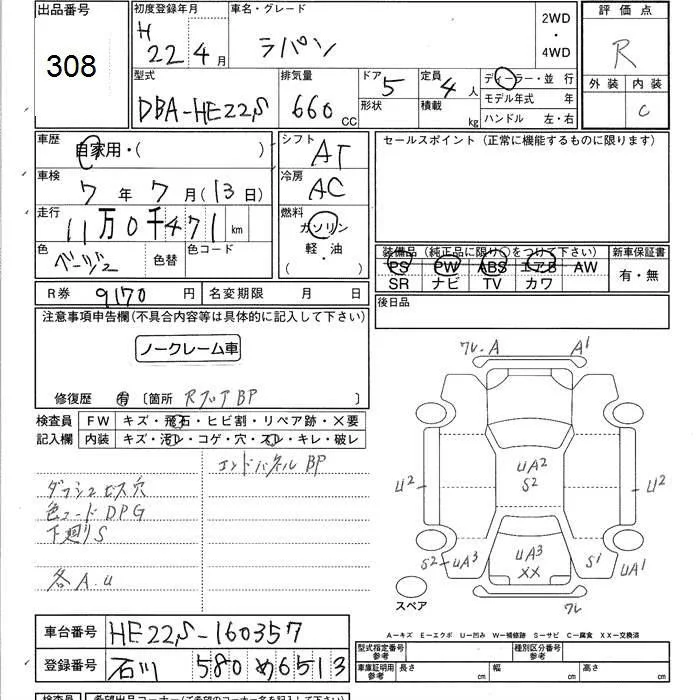 出品番号
308
初度登録年月
H 22年 4月
車名・グレード
ラパン
2WD
・
4WD
評価点
R
外装 内装
C
型式
DBA-HE22S
排気量
660 CC
ドア 5
形状
定員 4人
積載 kg
ディーラー・並行
モデル年式 年
ハンドル 左・右
車歴
自家用・( )
車検
7年 7月(13日)
走行
11万0千471 km
色
ベージュ
色替
色コード
シフト
AT
冷房
AC
燃料
ガソリン
軽・油
( )
セールスポイント (正常に機能するものに限ります)
装備品 (純正品に限り○をつけて下さい)
PS PW ABS エアB AW
SR ナビ TV カワ
新車保証書
有・無
後日品
R券 9170円
名変期限 月 日
注意事項申告欄(不具合内容等は具体的に記入して下さい)
ノークレーム車
修復歴 有 〔箇所 RフロアBP 〕
検査員 FW キズ・飛石・ヒビ割・リペア跡・×要
記入欄 内装 キズ・汚レ・コゲ・穴・スレ・キレ・破レ
エンドパネル BP
ダッシュビス穴
色コード DPG
下廻りS
各A.U
ワレ A A1
UA2
S2
U2 U2
UA3
XX
S2 UA3 S1 UA1
ワレ
スペア
A－キズ E－エクボ U－凹み W－補修跡 S－サビ C－腐食 XX－交換済
車台番号
HE22S-160357
登録番号
石川 580 め6513
型式指定番号
参考
種別区分番号
参考
車庫証明用
参考
長さ cm 幅 cm 高さ cm
検査員
希望出品コーナー(ご希望のコーナー名を記入して下さい)